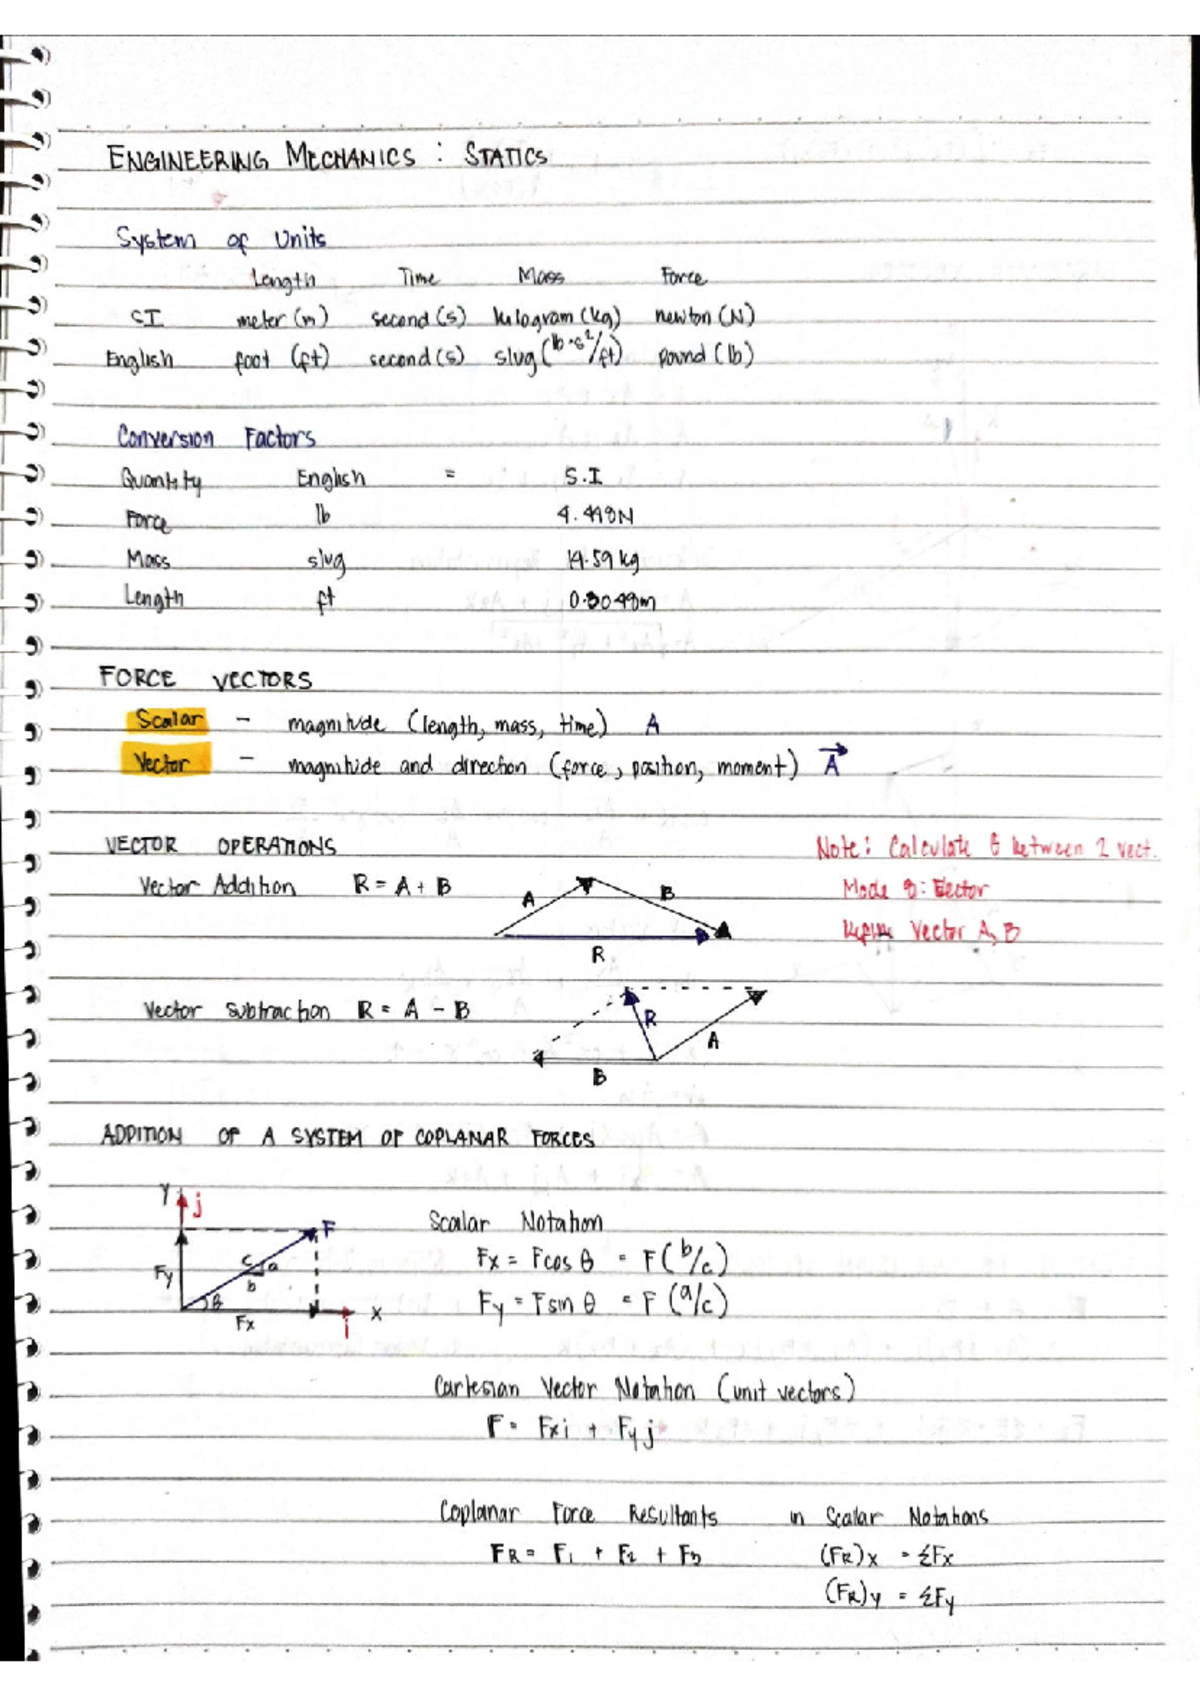 ENGINEERING MECHANICS : STATICS
System of Units
Length Time Mass Force
SI meter (m) second (s) kilogram (kg) newton (N)
English foot (ft) second (s) slug (lb·s²/ft) pound (lb)
Conversion Factors
Quantity English = S.I
Force lb 4.448N
Mass slug 14.59 kg
Length ft 0.3048m
FORCE VECTORS
Scalar - magnitude (length, mass, time) A
Vector - magnitude and direction (force, position, moment) A
VECTOR OPERATIONS
Note: Calculate θ between 2 vect.
Vector Addition R = A + B
A B
R
Mode 8: Vector
Vector A, B
Vector Subtraction R = A - B
R
A
B
ADDITION OF A SYSTEM OF COPLANAR FORCES
Y j
F
Fy
c a
b
θ
Fx
i
X
Scalar Notation
Fx = Fcos θ = F (b/c)
Fy = Fsin θ = F (a/c)
Cartesian Vector Notation (unit vectors)
F = Fxi + Fyj
Coplanar Force Resultants in Scalar Notations
FR = F1 + F2 + F3 (FR)x = ΣFx
(FR)y = ΣFy